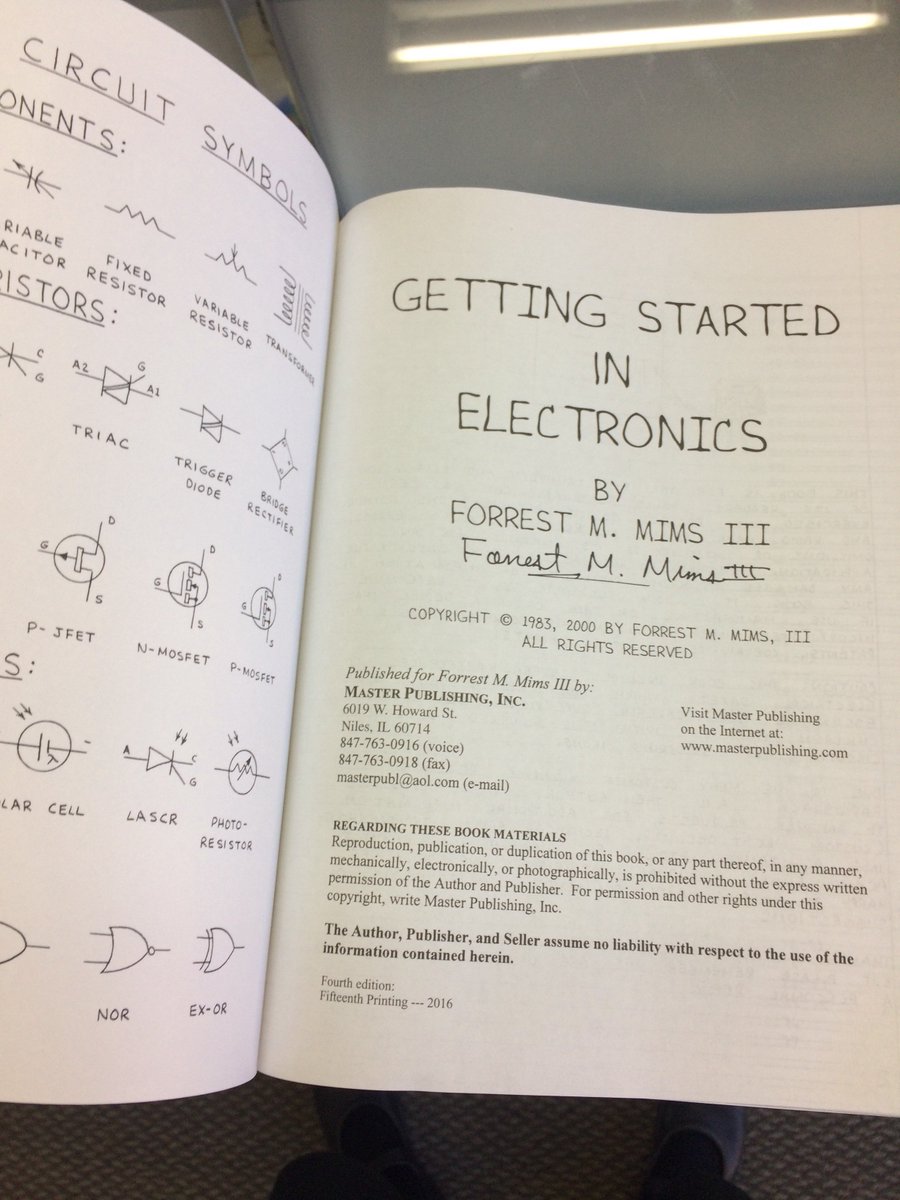 CIRCUIT SYMBOLS
ONENTS:
RIABLE
ACITOR
FIXED
RESISTOR
VARIABLE
RESISTOR
TRANSFORMER
ISTORS:
C
G
A2
G
A1
TRIAC
TRIGGER
DIODE
BRIDGE
RECTIFIER
G
D
S
P-JFET
G
D
S
N-MOSFET
G
D
S
P-MOSFET
S:
LAR CELL
A
C
G
LASCR
PHOTO-
RESISTOR
NOR
EX-OR
GETTING STARTED
IN
ELECTRONICS
BY
FORREST M. MIMS III
Forrest M. Mims III
COPYRIGHT © 1983, 2000 BY FORREST M. MIMS, III
ALL RIGHTS RESERVED
Published for Forrest M. Mims III by:
MASTER PUBLISHING, INC.
6019 W. Howard St.
Niles, IL 60714
847-763-0916 (voice)
847-763-0918 (fax)
masterpubl@aol.com (e-mail)
Visit Master Publishing
on the Internet at:
www.masterpublishing.com
REGARDING THESE BOOK MATERIALS
Reproduction, publication, or duplication of this book, or any part thereof, in any manner,
mechanically, electronically, or photographically, is prohibited without the express written
permission of the Author and Publisher. For permission and other rights under this
copyright, write Master Publishing, Inc.
The Author, Publisher, and Seller assume no liability with respect to the use of the
information contained herein.
Fourth edition:
Fifteenth Printing --- 2016